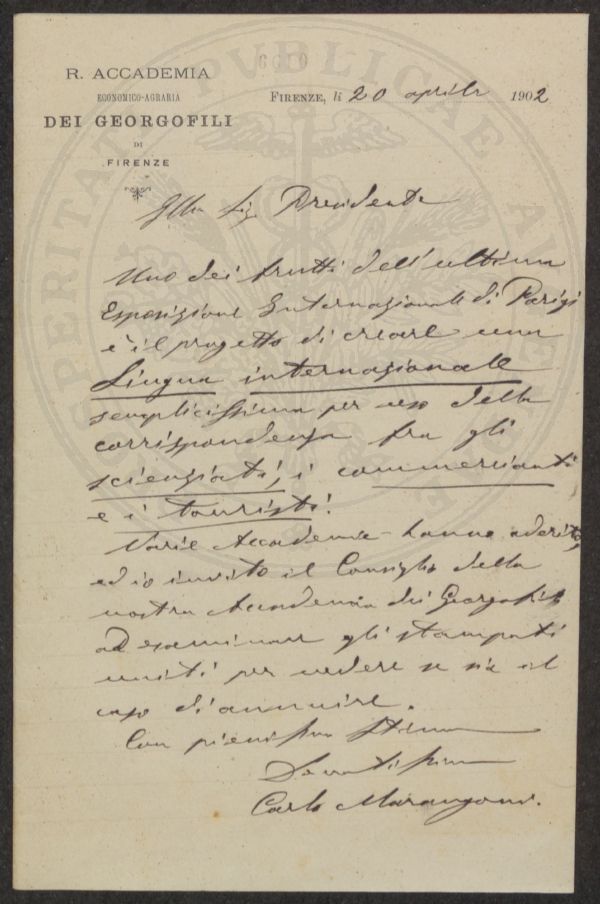 R. ACCADEMIA
ECONOMICO-AGRARIA
DEI GEORGOFILI
DI
FIRENZE
FIRENZE, li 20 aprile 1902
Illmo Sig. Presidente
Uno dei frutti dell'ultima
Esposizione Internazionale di Parigi
è il progetto di creare una
Lingua internazionale
semplicissima per uso della
corrispondenza fra gli
scienziati, i commercianti
e i touristi.
Varie Accademie hanno aderito,
ed io invito il Consiglio della
nostra Accademia dei Georgofili
ad esaminare gli stampati
uniti per vedere se sia il
caso di annuire.
Con pienissima stima
Devotissimo
Carlo Marangoni.